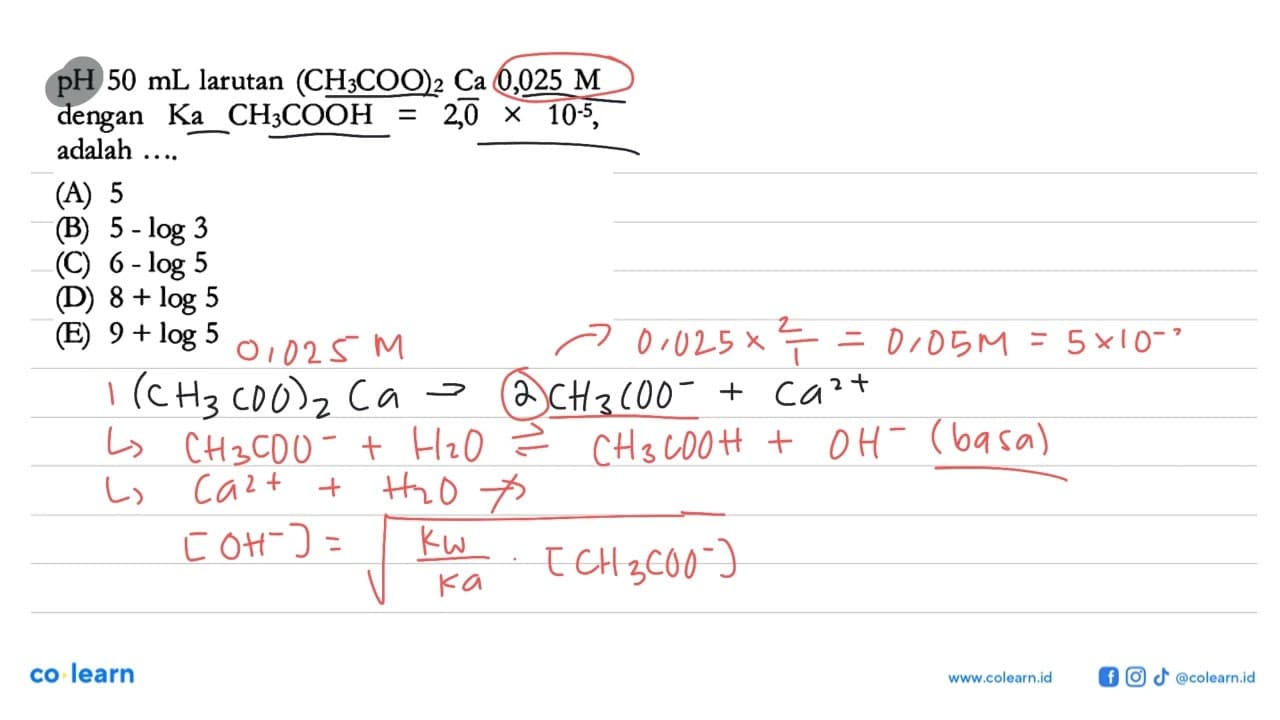 pH 50 mL larutan (CH₃COO)₂ Ca 0,025 M
dengan Ka CH₃COOH = 2,0 × 10⁻⁵,
adalah ....
(A) 5
(B) 5 - log 3
(C) 6 - log 5
(D) 8 + log 5
(E) 9 + log 5
0,025 M
0,025 × 2/1 = 0,05 M = 5 × 10⁻²
1 (CH₃COO)₂ Ca → 2 CH₃COO⁻ + Ca²⁺
↳ CH₃COO⁻ + H₂O ⇌ CH₃COOH + OH⁻ (basa)
↳ Ca²⁺ + H₂O ↛
[OH⁻] = √(Kw/Ka · [CH₃COO⁻])
co learn
www.colearn.id
@colearn.id